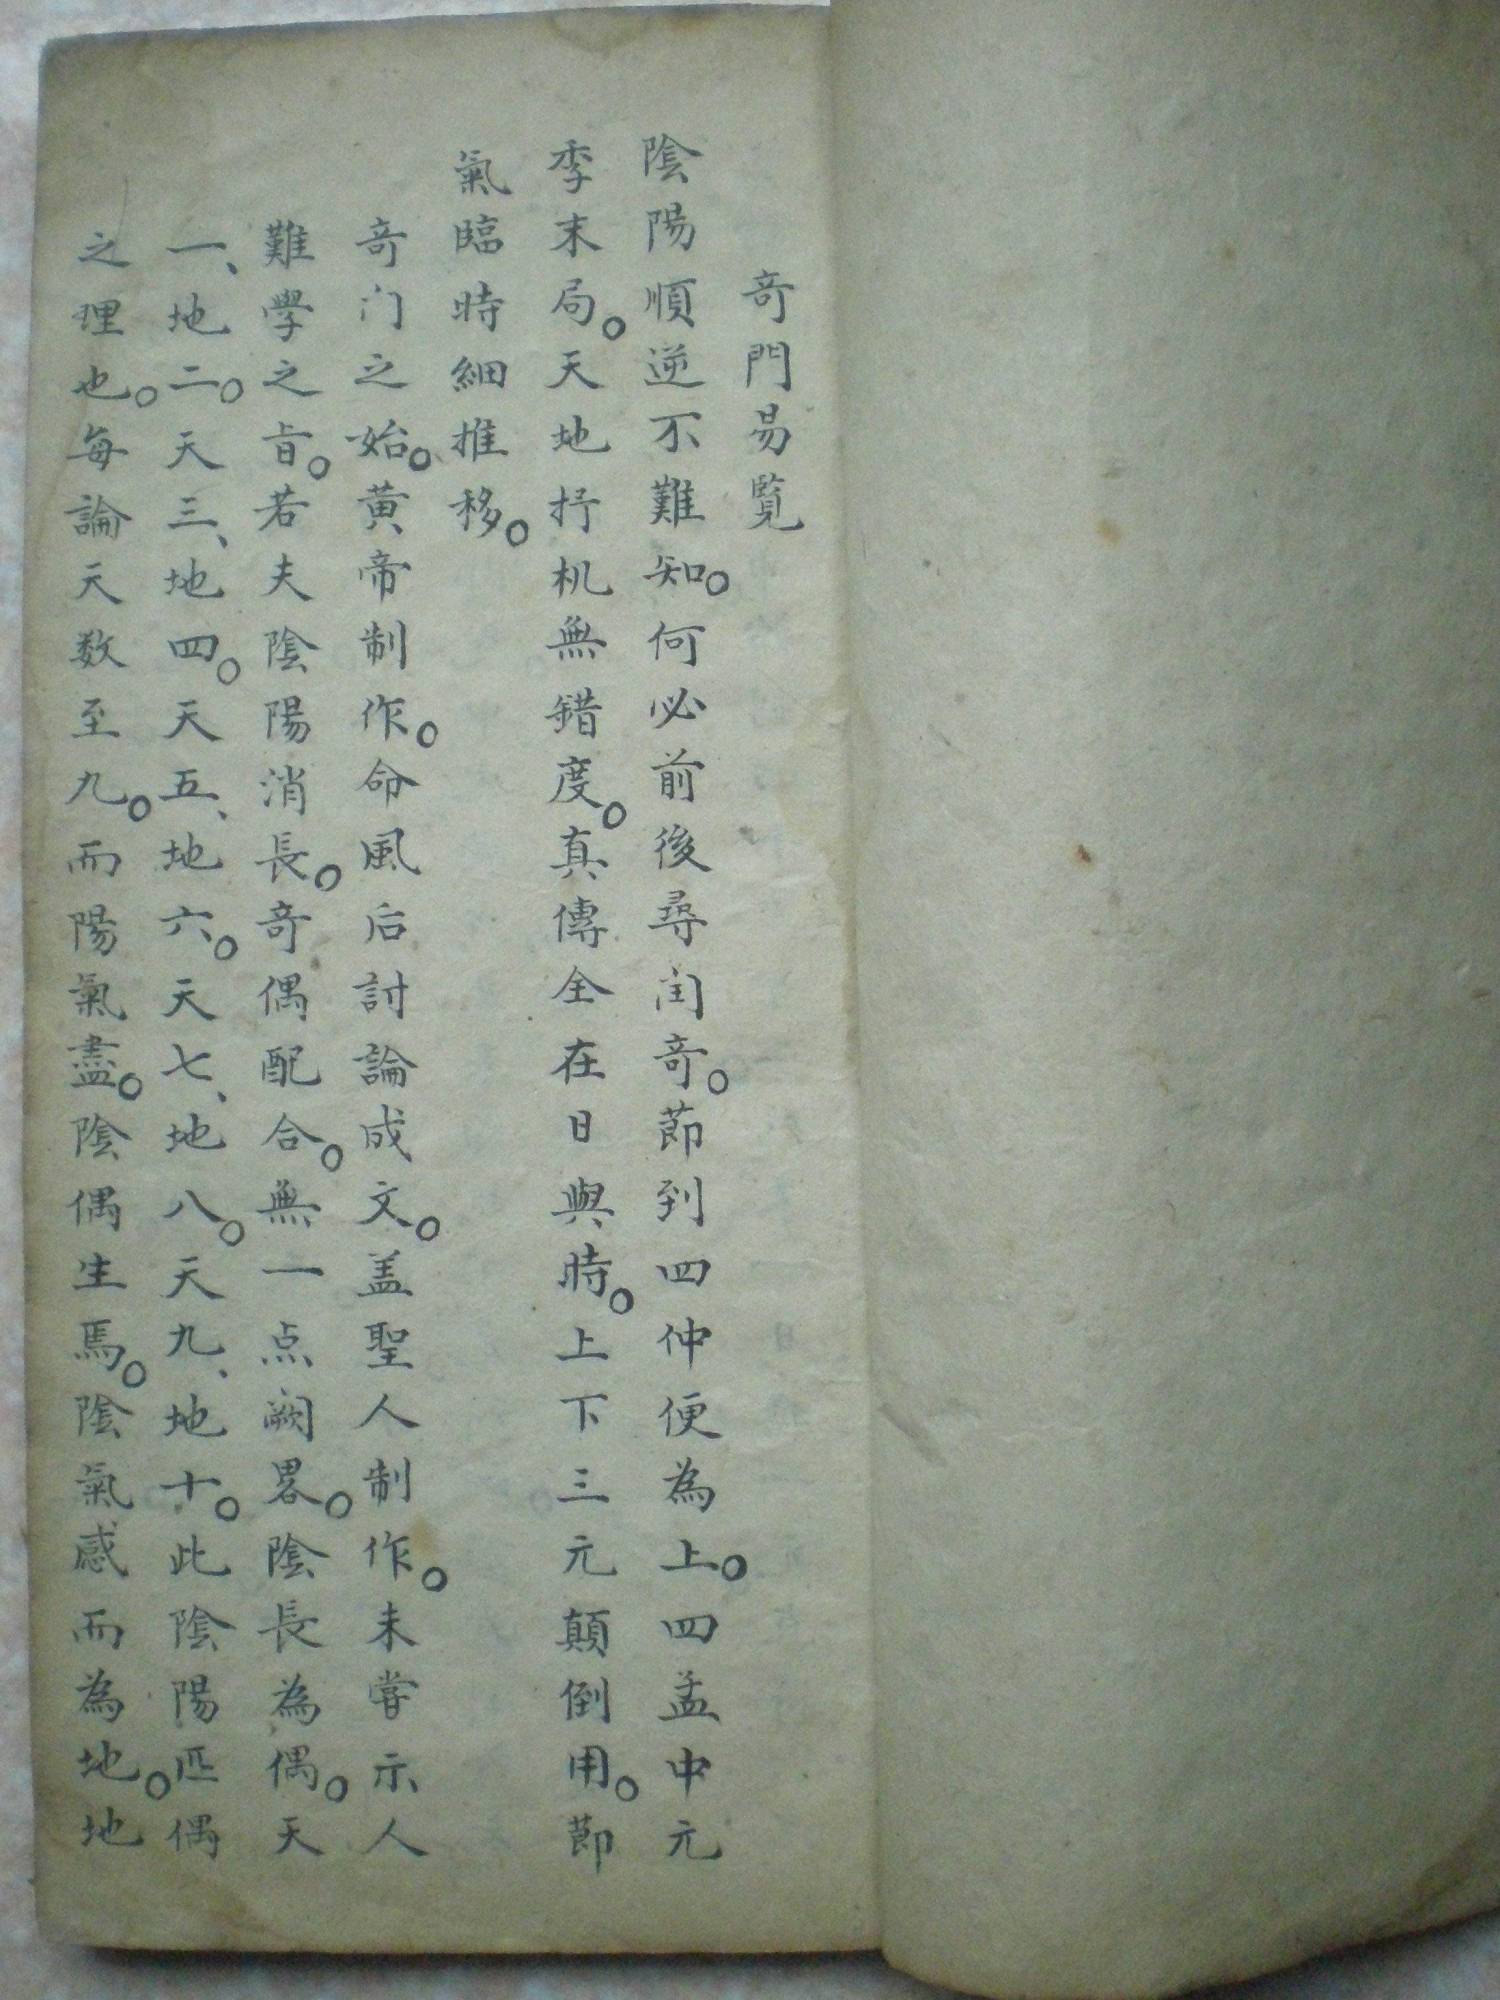 奇門易覧
陰陽順逆不難知。何必前後尋闰奇。節到四仲便為上。四孟中元
季末局。天地抒机無錯度。真傳全在日與時。上下三元顛倒用。節
氣臨時細推移。
奇门之始。黄帝制作。命風后討論成文。盖聖人制作。未嘗示人
難學之旨。若夫陰陽消長。奇偶配合。無一点阙畧。陰長為偶。天
一、地二。天三、地四。天五、地六。天七、地八。天九、地十。此陰陽匹偶
之理也。每論天数至九。而陽氣盡。陰偶生焉。陰氣感而為地。地